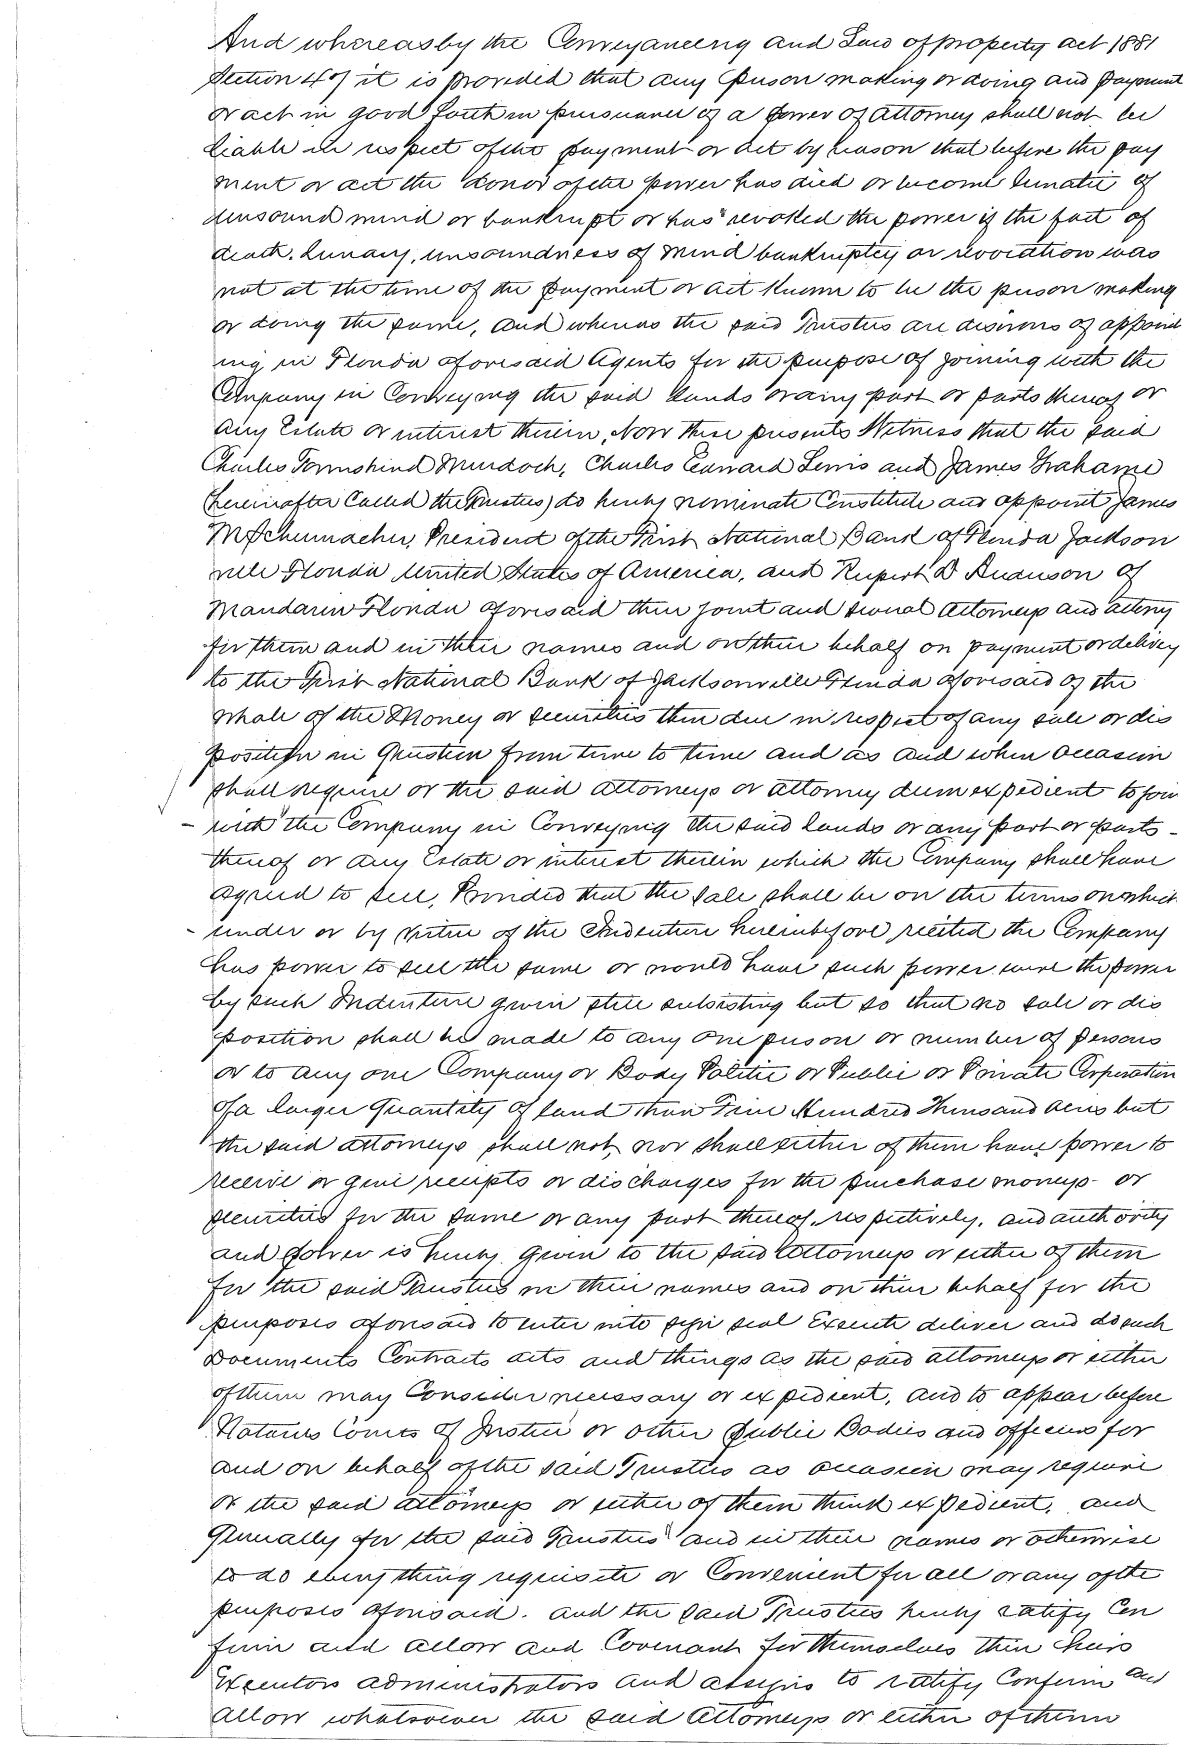 And whereas by the Conveyancing and Law of property act 1881
Section 47 it is provided that any person making or doing and payment
or act in good faith in pursuance of a power of attorney shall not be
liable in respect of the payment or act by reason that before the pay
ment or act the donor of the power has died or become lunatic of
unsound mind or bankrupt or has revoked the power if the fact of
death, lunacy, unsoundness of mind bankruptcy or revocation was
not at the time of the payment or act known to be the person making
or doing the same, and whereas the said Trustees are desirous of appoint
ing in Florida aforesaid Agents for the purpose of joining with the
Company in Conveying the said lands or any part or parts thereof or
any Estate or interest therein, Now these presents Witness that the said
Charles Townshend Murdoch, Charles Edward Lewis and James Grahame
(hereinafter Called the Trustees) do hereby nominate Constitute and appoint James
M Schumacher, President of the First National Bank of Florida Jackson
ville Florida United States of America, and Rupert D Anderson of
Mandarin Florida aforesaid their joint and several attorneys and attorney
for them and in their names and on their behalf on payment or delivery
to the First National Bank of Jacksonville Florida aforesaid of the
whole of the Money or securities then due in respect of any sale or dis
position in question from time to time and as and when occasion
shall require or the said attorneys or attorney deem expedient to join
with the Company in Conveying the said lands or any part or parts -
thereof or any Estate or interest therein which the Company shall have
agreed to sell, Provided that the sale shall be on the terms on which
under or by virtue of the Indenture hereinbefore recited the Company
has power to sell the same or would have such power were the power
by such Indenture given still subsisting but so that no sale or dis
position shall be made to any one person or number of persons
or to any one Company or Body Politic or Public or Private Corporation
of a larger quantity of land than Five Hundred Thousand acres but
the said attorneys shall not, nor shall either of them have power to
receive or give receipts or discharges for the purchase moneys or
securities for the same or any part thereof, respectively, and authority
and power is hereby given to the said attorneys or either of them
for the said Trustees in their names and on their behalf for the
purposes aforesaid to enter into sign seal Execute deliver and do such
Documents Contracts acts and things as the said attorneys or either
of them may Consider necessary or expedient, and to appear before
Notaries Courts of Justice or other public Bodies and officers for
and on behalf of the said Trustees as occasion may require
or the said attorneys or either of them think expedient, and
Generally for the said Trustees and in their names or otherwise
to do everything requisite or Convenient for all or any of the
purposes aforesaid. and the said Trustees hereby ratify Con
firm and allow and Covenant for themselves their heirs
Executors administrators and assigns to ratify Confirm and
allow whatsoever the said attorneys or either of them